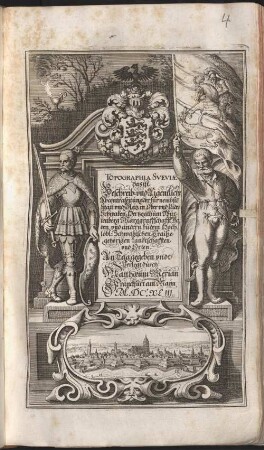 4
TOPOGRAPHIA SVEVIÆ
das ist
Beschreib: und Aigentliche
Abcontrafeitung der fürnembsten
Stätt und Plätz in Ober und Nider
Schwaben, Hertzogthum Würtenberg
Marggraffschafft Baden
und andern zu dem Hochlöbl:
Schwabischen Craiße
gehörigen Landtschafften
und Orten.
An Tag gegeben undt
Verlegt durch
Matthæum Merian
Franckfurt am Mayn
M.DC.XLIII.